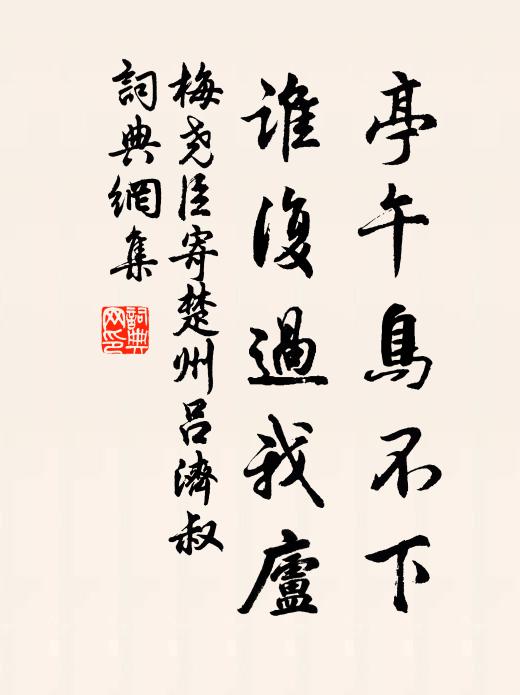 亭午鳥不下
誰復過我廬
梅堯臣寄楚州呂濟叔
詞典網集
詞典
网印